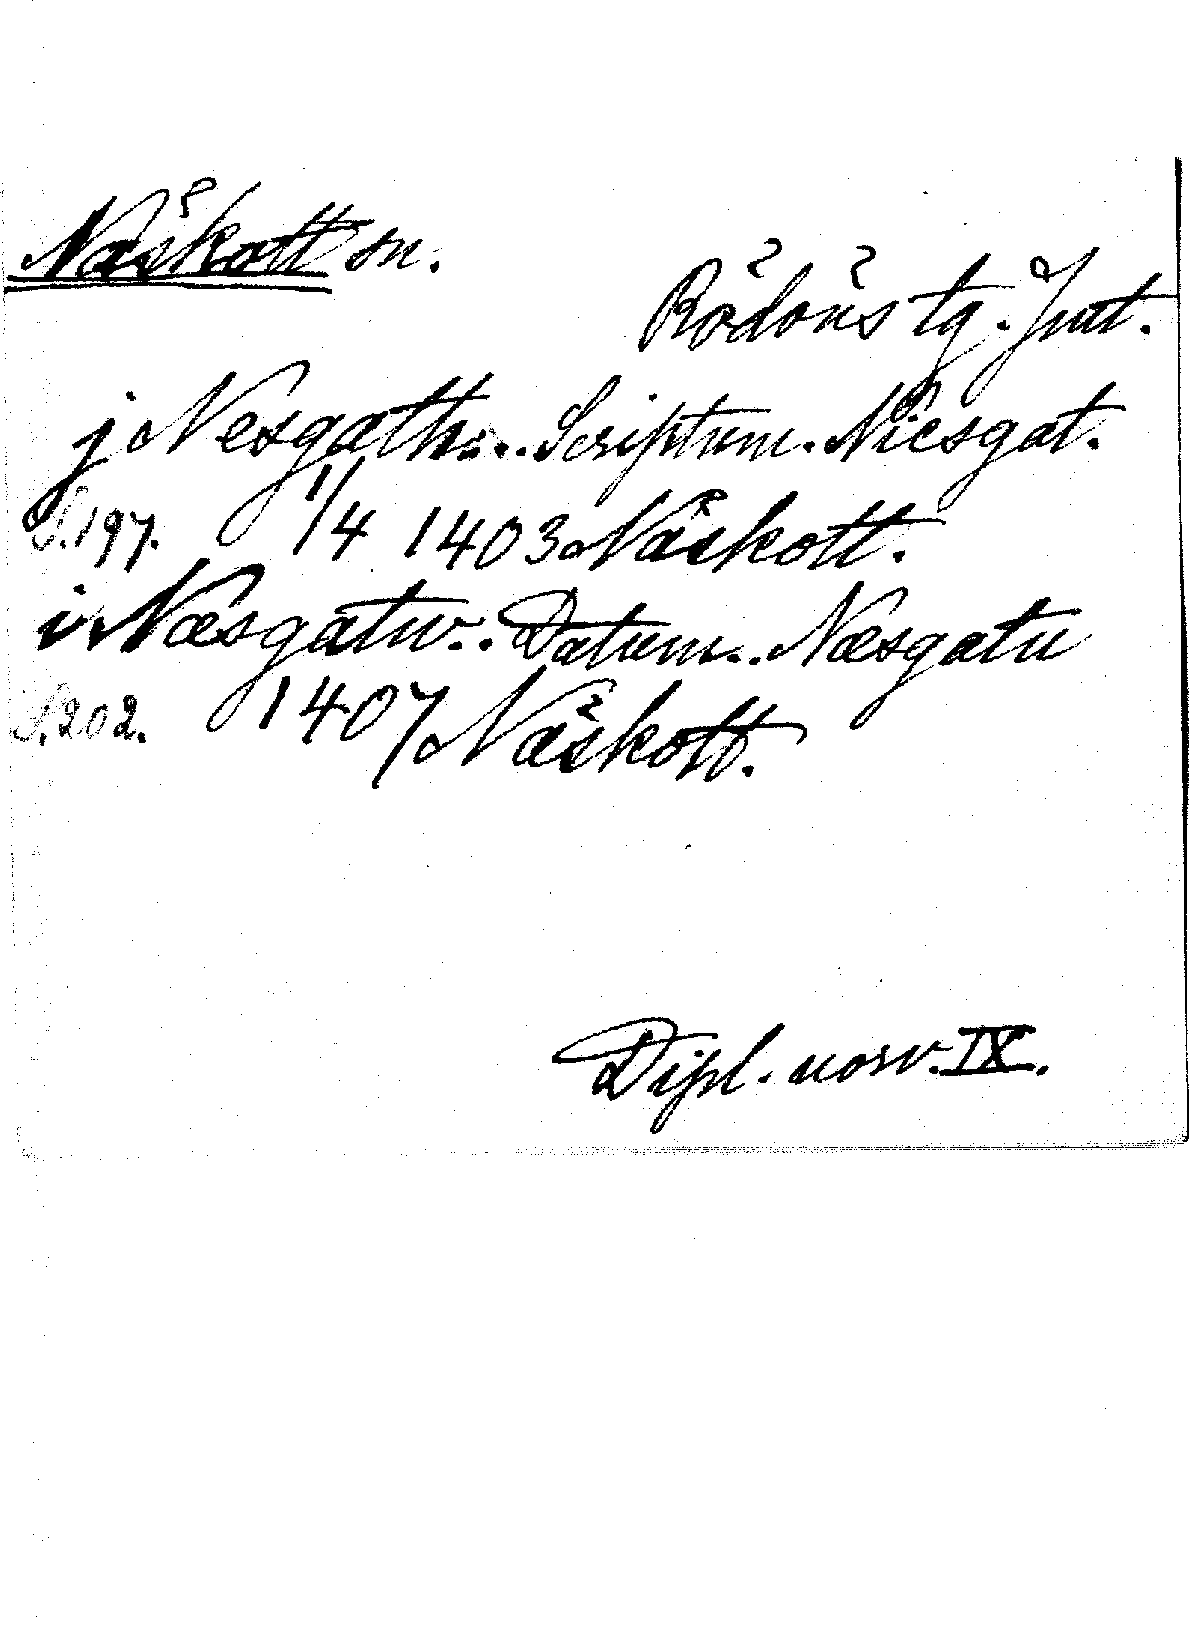 Näskott sn.
Rödöns tg. Jmt.
j Nesgath... Scriptum. Niesgat.
S. 197. 1/4 1403 Näskott.
i Næsgatu.. Datum... Næsgatu
S. 202. 1407 Näskott.
Dipl. norv. IX.